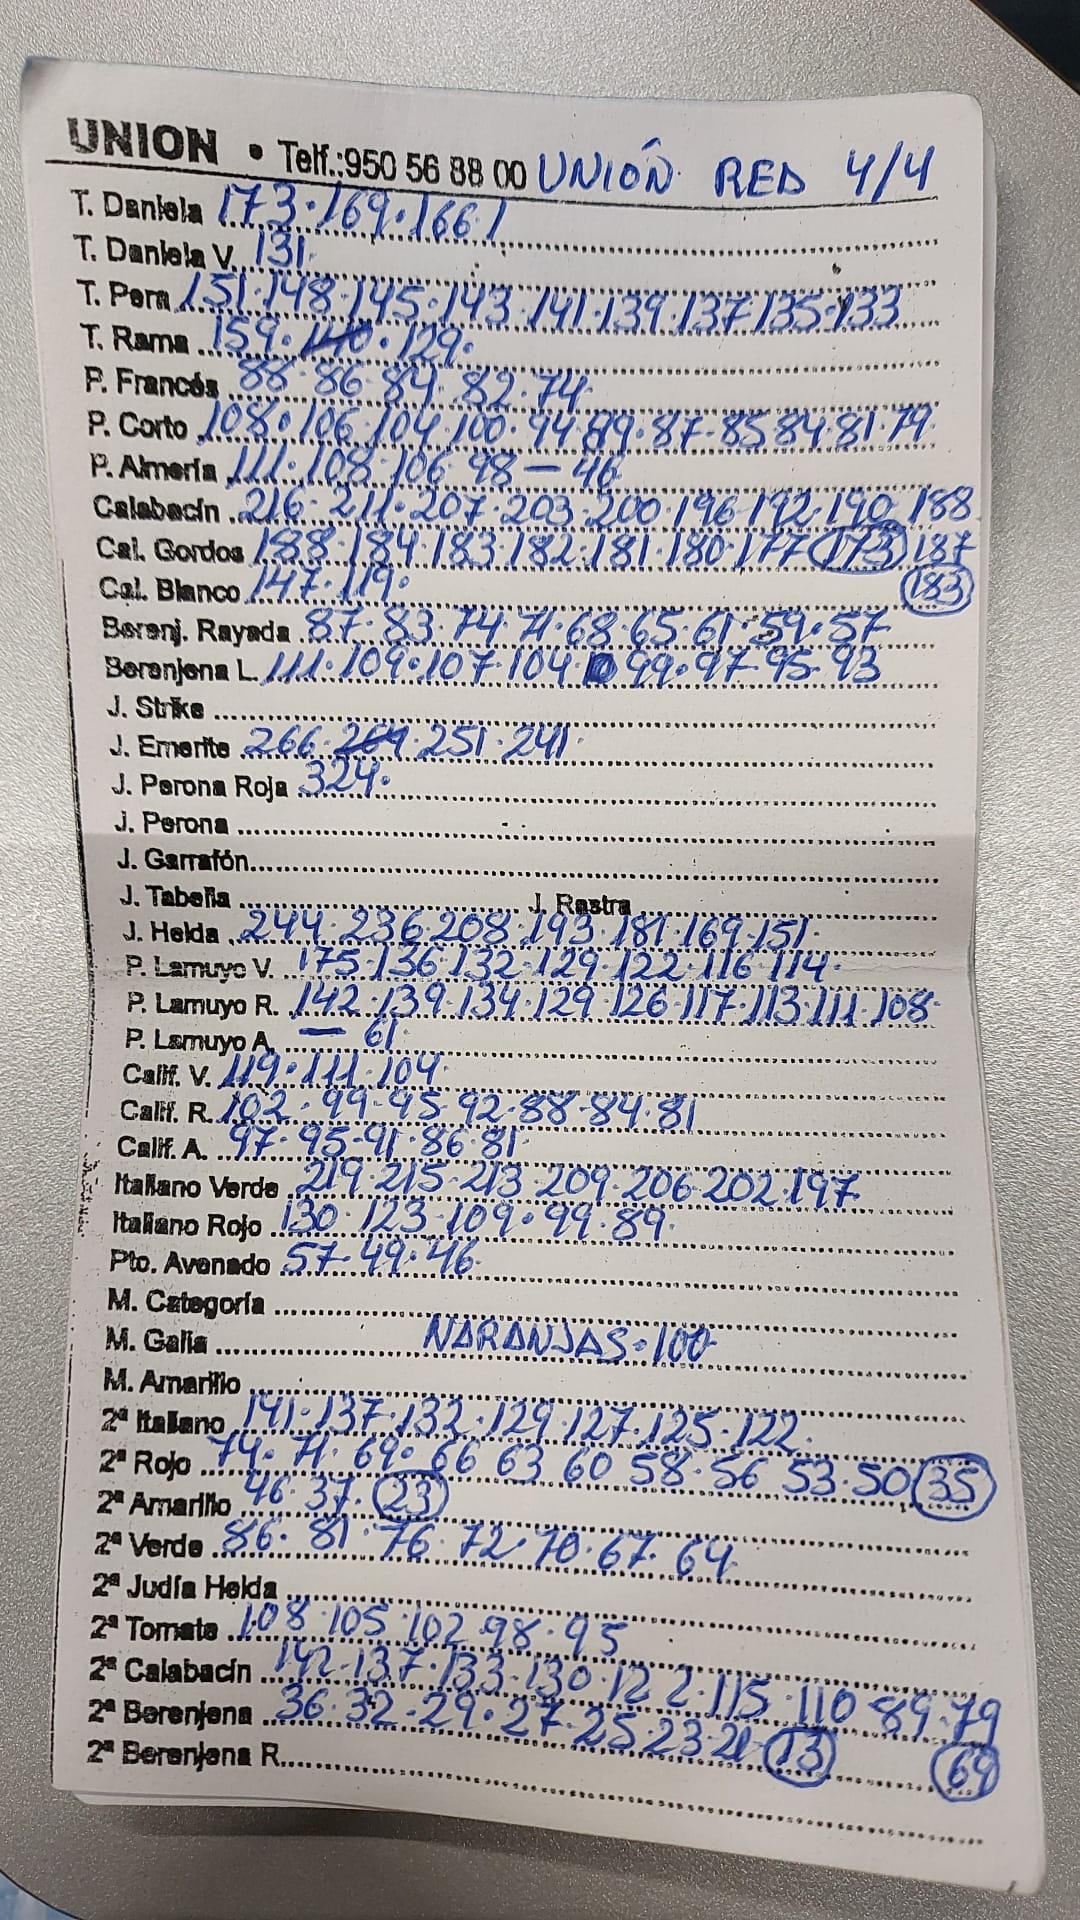 UNION • Telf.:950 56 88 00 UNIÓN RED 4/4
T. Daniela 173·169·166·1
T. Daniela V. 131·
T. Pera 151·148·145·143·141·139·137·135·133
T. Rama 159·140·129·
P. Francés 88·86·84·82·74
P. Corto 108·106·104·100·94·89·87·85·84·81·79
P. Almería 111·108·106·98 — 46
Calabacín 216·211·207·203·200·196·192·190·188
Cal. Gordos 188·184·183·182·181·180·177 173 187
Cal. Blanco 147·119· 183
Berenj. Rayada 87·83·74·71·68·65·61·59·57
Berenjena L. 111·109·107·104· 99·97·95·93
J. Strike
J. Emerite 266· 251·241·
J. Perona Roja 324·
J. Perona
J. Garrafón
J. Tabella J. Rastra
J. Helda 244·236·208·193·181·169·151·
P. Lamuyo V. 175·136·132·129·122·116·114·
P. Lamuyo R. 142·139·134·129·126·117·113·111·108·
P. Lamuyo A. — 61
Calif. V. 119·111·104·
Calif. R. 102·99·95·92·88·84·81
Calif. A. 97·95·91·86·81·
Italiano Verde 219·215·213·209·206·202·197
Italiano Rojo 130·123·109·99·89·
Pto. Avenado 57·49·46·
M. Categoría
M. Galia NARANJAS·100
M. Amarillo
2ª Italiano 141·137·132·129·127·125·122·
2ª Rojo 74·71·69·66 63 60 58·56 53·50 35
2ª Amarillo 46·37· 23
2ª Verde 86·81·76·72·70·67·64
2ª Judía Helda
2ª Tomate 108·105·102·98·95
2ª Calabacín 142·137·133·130·122·115·110 89·79
2ª Berenjena 36·32·29·27·25·23·21 13 69
2ª Berenjena R.